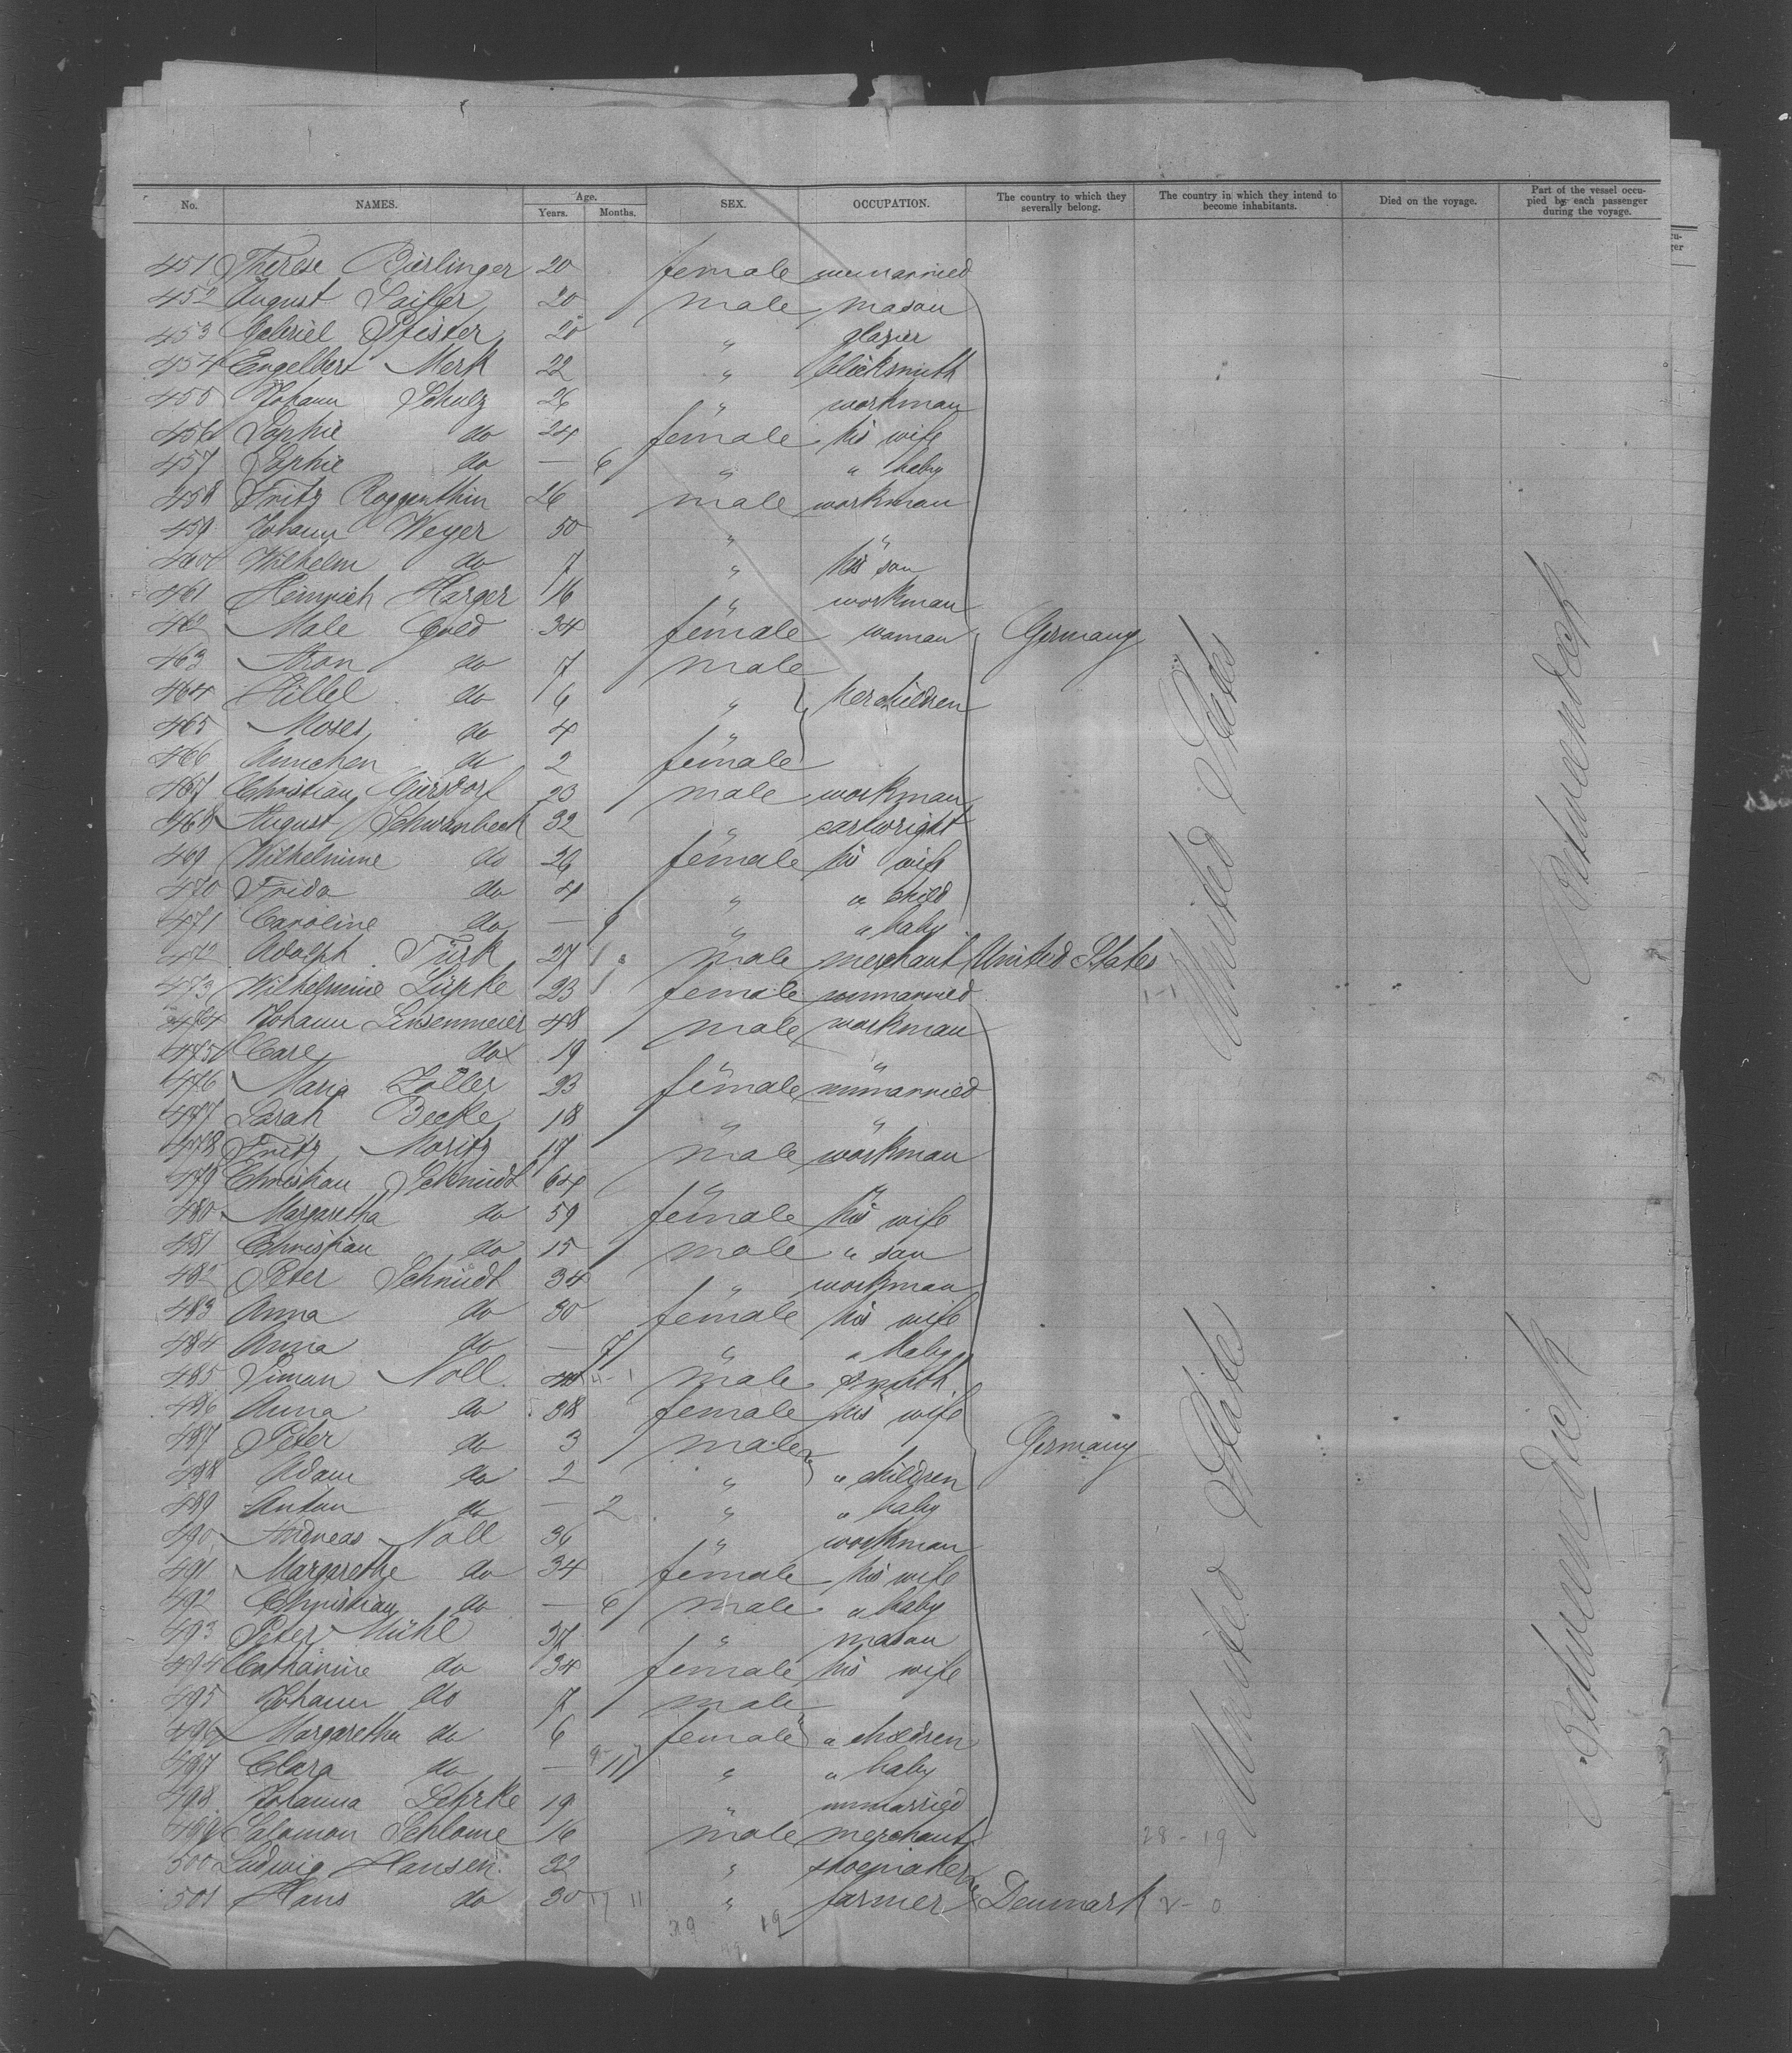 No. NAMES. Age. Years. Months. SEX. OCCUPATION. The country to which they severally belong. The country in which they intend to become inhabitants. Died on the voyage. Part of the vessel occupied by each passenger during the voyage.
451 Therese Bierlinger 20 female unmarried
452 August Saifer 20 male mason
453 Gabriel Pfister 20 " glazier
454 Engelbert Merk 22 " blacksmith
455 Johann Schulz 26 " workman
456 Sophie do 24 female his wife
457 Sophie do — 6 " " baby
458 Fritz Roggenthin 26 male workman
459 Johann Weyer 50 " "
460 Wilhelm do 7 " his son
461 Heinrich Harger 16 " workman
462 Male Gold 34 female woman Germany
463 Aron do 7 male
464 Hillel do 6 " her children
465 Moses do 4 "
466 Annchen do 2 female
467 Christian Giersdorf 23 male workman
468 August Schwanbeck 32 " cartwright
469 Wilhelmine do 26 female his wife
470 Frida do 4 " " child
471 Caroline do — 9 " " baby
472 Adolph Türk 27 male merchant United States
473 Wilhelmine Lüpke 23 female unmarried
474 Johann Linsenmeier 48 male workman
475 Carl do 19 " "
476 Maria Zoller 23 female unmarried
477 Sarah Beefke 18 " "
478 Fritz Moritz 17 male workman
479 Christian Schmidt 64 " "
480 Margaretha do 59 female his wife
481 Christian do 15 male " son
482 Peter Schmidt 34 " workman
483 Anna do 30 female his wife
484 Anna do — 7 " " baby
485 Simon Noll male smith
486 Anna do 38 female his wife
487 Peter do 3 male Germany
488 Adam do 2 " " children
489 Anton do — 2 " " baby
490 Andreas Noll 36 " workman
491 Margarethe do 34 female his wife
492 Christian do — 6 male " baby
493 Peter Mühl 37 " mason
494 Catharine do 34 female his wife
495 Johann do 7 male
496 Margaretha do 6 female " children
497 Clara do — 11 " " baby
498 Johanna Lehrke 19 " unmarried
499 Salomon Schlome 16 male merchant 28-19
500 Ludwig Hansen 32 " shoemaker
501 Hans do 30 " farmer Denmark 2-0
United States
United States
Betweendeck
Betweendeck